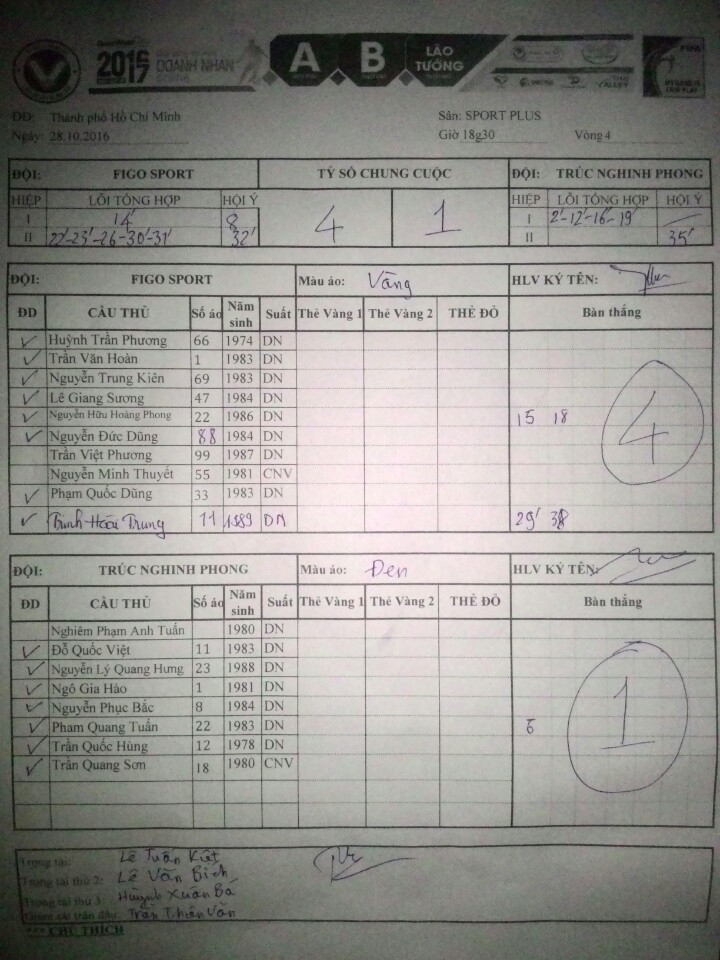 2016
2017 DOANH NHÂN
A B LÃO TƯỚNG
ĐĐ: Thành phố Hồ Chí Minh Sân: SPORT PLUS
Ngày: 28.10.2016 Giờ 18g30 Vòng 4
ĐỘI: FIGO SPORT TỶ SỐ CHUNG CUỘC ĐỘI: TRÚC NGHINH PHONG
HIỆP LỖI TỔNG HỢP HỘI Ý 4 1 HIỆP LỖI TỔNG HỢP HỘI Ý
I 14' 8 I 2'-12'-16'-19'
II 22'-23'-26'-30'-31' 32' II 35'
ĐỘI: FIGO SPORT Màu áo: Vàng HLV KÝ TÊN:
ĐD CẦU THỦ Số áo Năm sinh Suất Thẻ Vàng 1 Thẻ Vàng 2 THẺ ĐỎ Bàn thắng
Huỳnh Trần Phương 66 1974 DN
Trần Văn Hoàn 1 1983 DN
Nguyễn Trung Kiên 69 1983 DN
Lê Giang Sương 47 1984 DN
Nguyễn Hữu Hoàng Phong 22 1986 DN 15 18
Nguyễn Đức Dũng 88 1984 DN
Trần Việt Phương 99 1987 DN
Nguyễn Minh Thuyết 55 1981 CNV
Phạm Quốc Dũng 33 1983 DN
Trịnh Hữu Trung 11 1989 DN 29' 38
4
ĐỘI: TRÚC NGHINH PHONG Màu áo: Đen HLV KÝ TÊN:
ĐD CẦU THỦ Số áo Năm sinh Suất Thẻ Vàng 1 Thẻ Vàng 2 THẺ ĐỎ Bàn thắng
Nghiêm Phạm Anh Tuấn 1980 DN
Đỗ Quốc Việt 11 1983 DN
Nguyễn Lý Quang Hưng 23 1988 DN
Ngô Gia Hào 1 1981 DN
Nguyễn Phục Bắc 8 1984 DN
Phạm Quang Tuấn 22 1983 DN
Trần Quốc Hùng 12 1978 DN
Trần Quang Sơn 18 1980 CNV
1
Trọng tài: Lê Tuấn Kiệt
Trọng tài thứ 2: Lê Văn Bích
Trọng tài thứ 3: Huỳnh Xuân Bá
Giám sát trận đấu: Trần Thiện Văn
*** CHÚ THÍCH